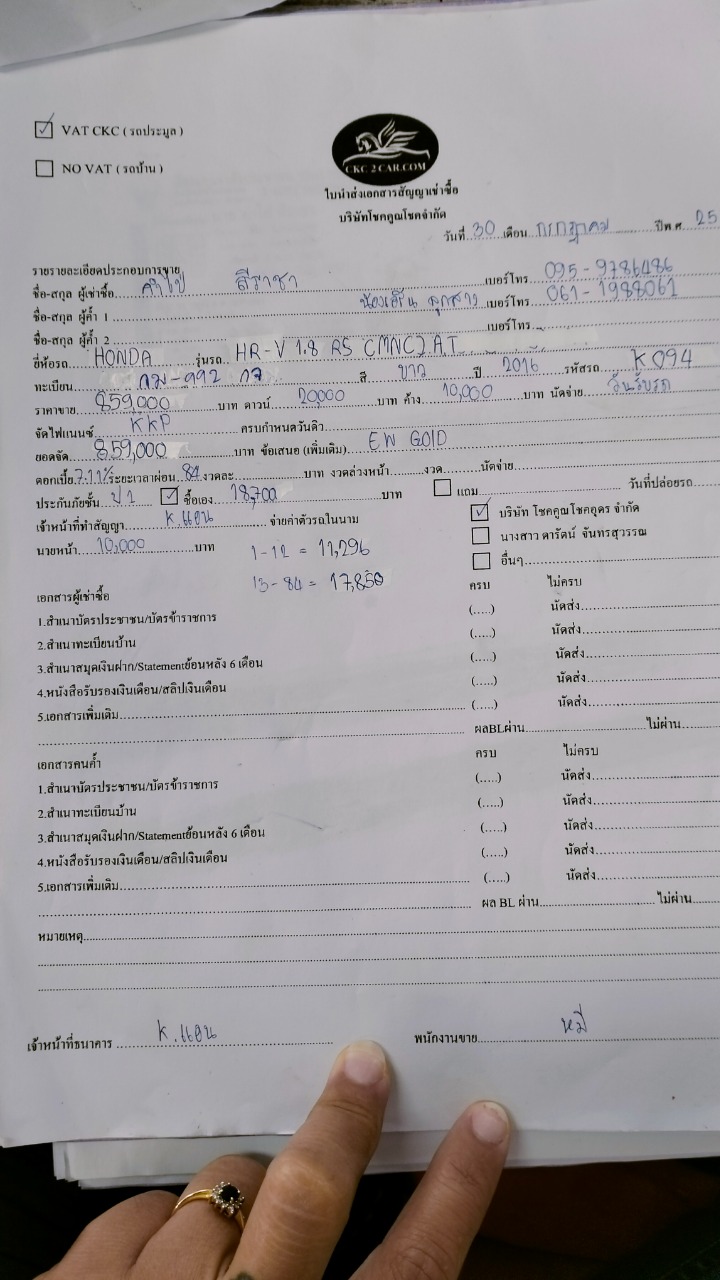 VAT CKC ( รถประมูล )
NO VAT ( รถบ้าน )
CKC 2 CAR.COM
ใบนำส่งเอกสารสัญญาเช่าซื้อ
บริษัทโชคคูณโชคจำกัด
วันที่ 30 เดือน กรกฎาคม ปีพ.ศ. 25
รายรายละเอียดประกอบการขาย
ชื่อ-สกุล ผู้เช่าซื้อ สีราชา เบอร์โทร 095-9786486
ชื่อ-สกุล ผู้ค้ำ 1 ลูกสาว เบอร์โทร 061-1988061
ชื่อ-สกุล ผู้ค้ำ 2 เบอร์โทร
ยี่ห้อรถ HONDA รุ่นรถ HR-V 1.8 RS (MNC) AT
ทะเบียน สี ขาว ปี 2016 รหัสรถ K094
ราคาขาย 859,000 บาท ดาวน์ 20,000 บาท ค้าง 10,000 บาท นัดจ่าย วันรับรถ
จัดไฟแนนซ์ KKP ครบกำหนดวันดิว
ยอดจัด 859,000 บาท ข้อเสนอ (เพิ่มเติม) EW GOLD
ดอกเบี้ย 7.11% ระยะเวลาผ่อน 84 งวดละ บาท งวดล่วงหน้า งวด นัดจ่าย
ประกันภัยชั้น ป1 ซื้อเอง 18,700 บาท แถม วันที่ปล่อยรถ
เจ้าหน้าที่ทำสัญญา K.แอน จ่ายค่าตัวรถในนาม บริษัท โชคคูณโชคอุดร จำกัด
นายหน้า 10,000 บาท 1-12 = 11,296 นางสาว ดารัตน์ จันทรสุวรรณ
13-84 = 17,850 อื่นๆ
เอกสารผู้เช่าซื้อ ครบ ไม่ครบ
1.สำเนาบัตรประชาชน/บัตรข้าราชการ (.....) นัดส่ง
2.สำเนาทะเบียนบ้าน (.....) นัดส่ง
3.สำเนาสมุดเงินฝาก/Statementย้อนหลัง 6 เดือน (.....) นัดส่ง
4.หนังสือรับรองเงินเดือน/สลิปเงินเดือน (.....) นัดส่ง
5.เอกสารเพิ่มเติม (.....) นัดส่ง
ผลBLผ่าน ไม่ผ่าน
เอกสารคนค้ำ ครบ ไม่ครบ
1.สำเนาบัตรประชาชน/บัตรข้าราชการ (.....) นัดส่ง
2.สำเนาทะเบียนบ้าน (.....) นัดส่ง
3.สำเนาสมุดเงินฝาก/Statementย้อนหลัง 6 เดือน (.....) นัดส่ง
4.หนังสือรับรองเงินเดือน/สลิปเงินเดือน (.....) นัดส่ง
5.เอกสารเพิ่มเติม (.....) นัดส่ง
ผล BL ผ่าน ไม่ผ่าน
หมายเหตุ
เจ้าหน้าที่ธนาคาร K.แอน พนักงานขาย หมี่